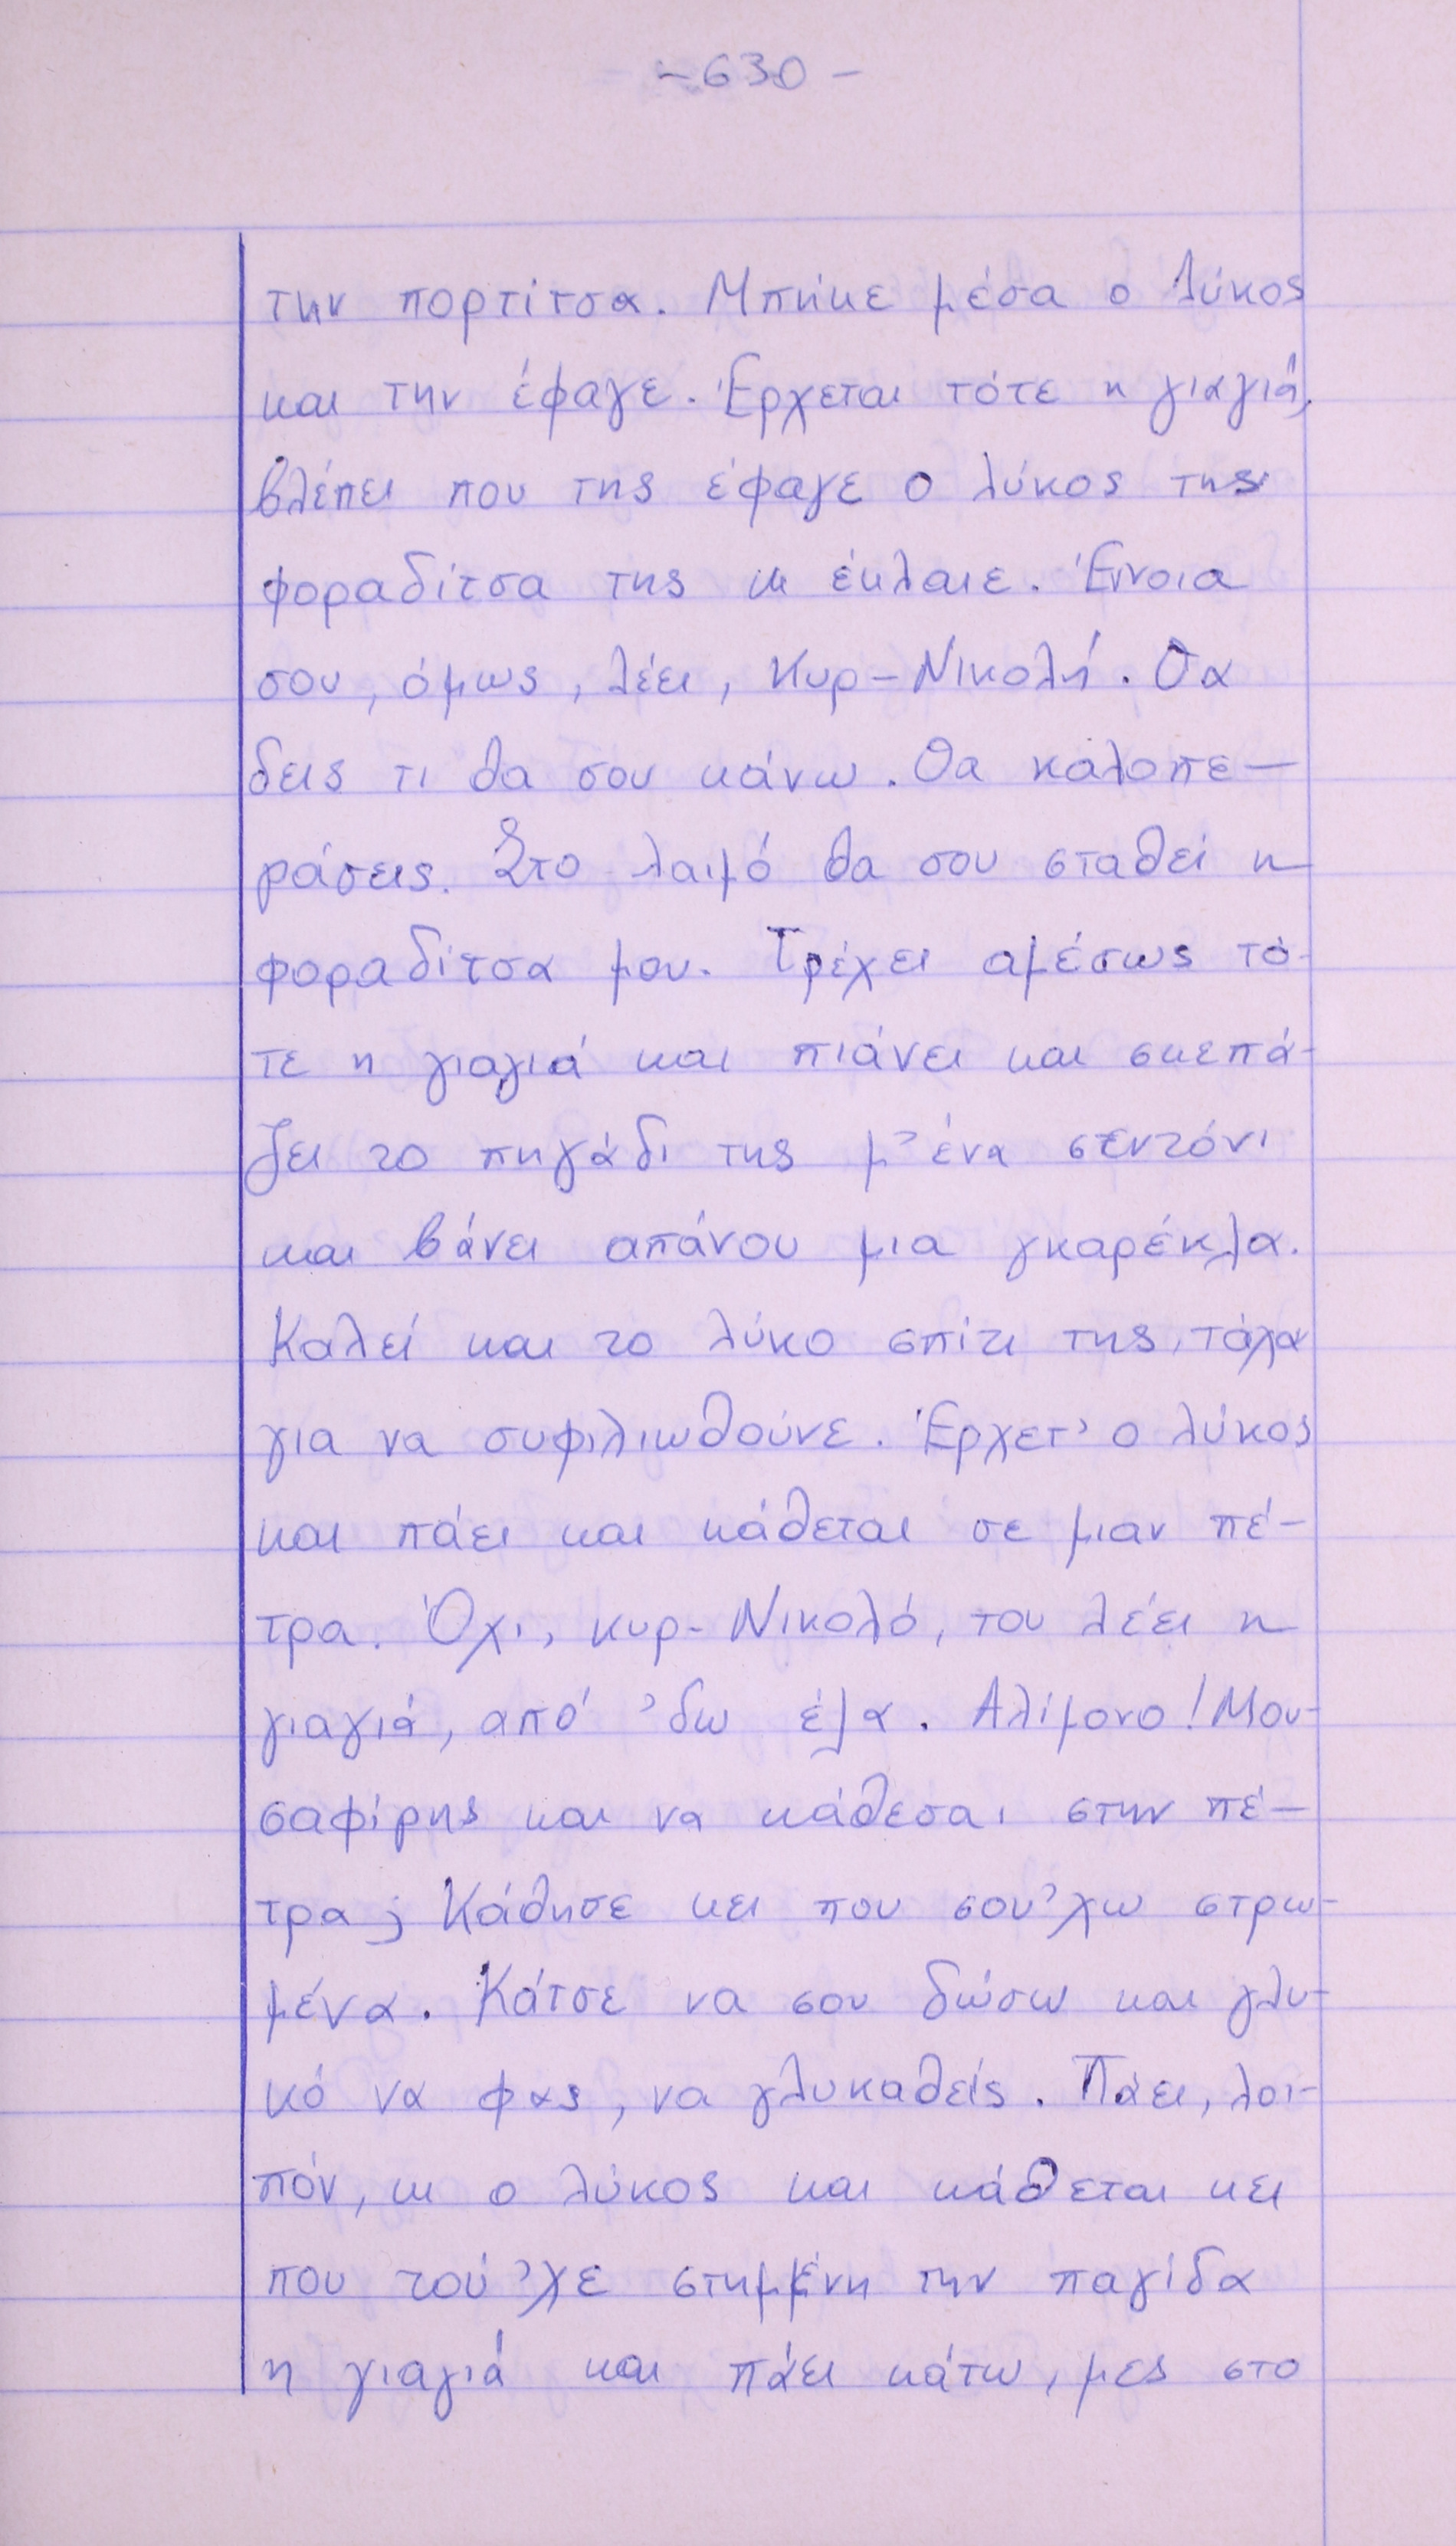 -630-
την πορτίτσα. Μπήκε μέσα ο λύκος
και την έφαγε. Έρχεται τότε η γιαγιά,
βλέπει που της έφαγε ο λύκος της
φοραδίτσα της κι έκλαιε. Έννοια
σου, όμως, λέει, Κυρ-Νικολή. Θα
δεις τι θα σου κάνω. Θα καλοπε-
ράσεις. Στο λαιμό θα σου σταθεί η
φοραδίτσα μου. Τρέχει αμέσως τό-
τε η γιαγιά και πιάνει και σκεπά-
ζει το πηγάδι της μ' ένα σεντόνι
και βάνει απάνου μια γκαρέκλα.
Καλεί και το λύκο σπίτι της, τάχα
για να συφιλιωθούνε. Έρχετ' ο λύκος
και πάει και κάθεται σε μιαν πέ-
τρα. Όχι, κυρ-Νικολό, του λέει η
γιαγιά, από 'δω έλα. Αλίμονο! Μου-
σαφίρης και να κάθεσαι στην πέ-
τρα; Κάθησε κει που σου'χω στρω-
μένα. Κάτσε να σου δώσω και γλυ-
κό να φας, να γλυκαθείς. Πάει, λοι-
πόν, κι ο λύκος και κάθεται κει
που τού'χε στημμένη την παγίδα
η γιαγιά και πάει κάτω, μες στο